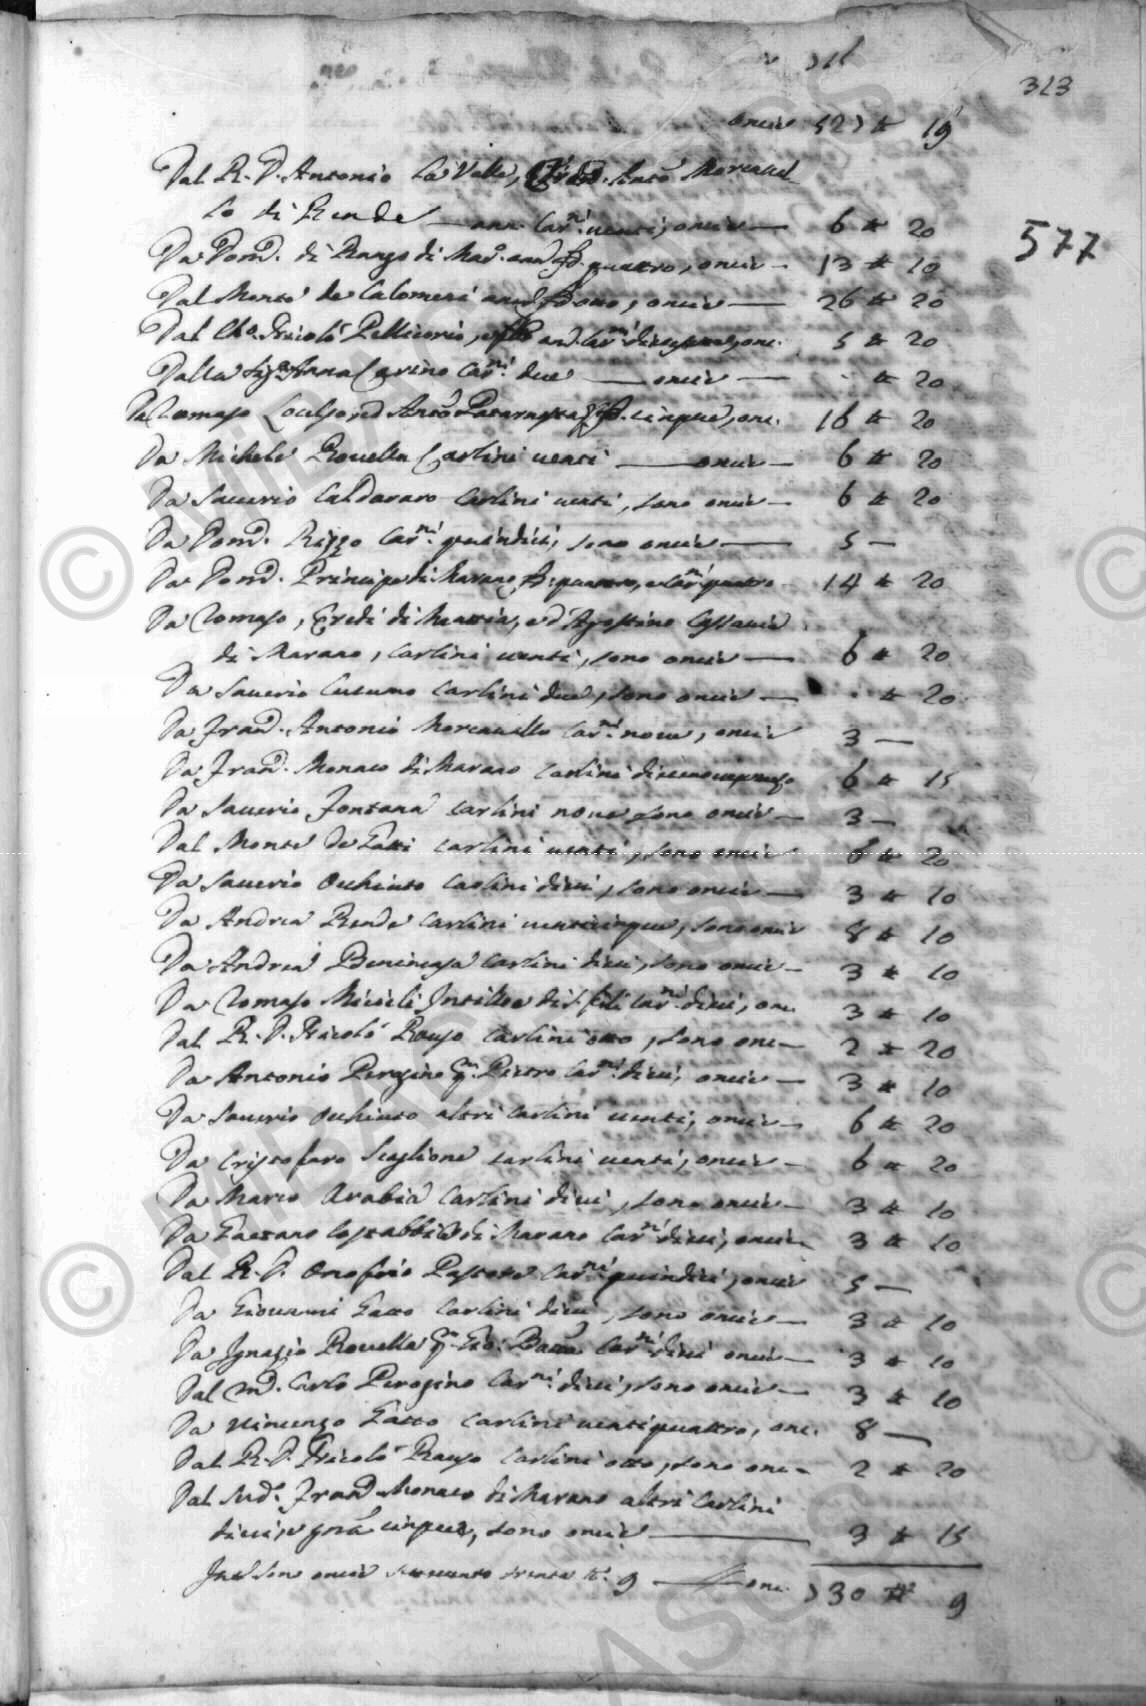 313
oncie 523 tt 19
577
Dal R. D. Antonio La Valle, Fran. Anto Morcavel
lo di Rende — ann. Carni venti, oncie — 6 tt 20
Da Dom. di Rango di Mar. quattro, oncie — 13 tt 10
Dal Monte de Calomeni otto, oncie — 26 tt 20
Dal Nicolò Pellicorio, onc. 5 tt 20
Dalla Sigra Anna Carino Carni due — oncie — . tt 20
Da Tomaso ed Anto cinque, onc. 16 tt 20
Da Michele Rovella Carlini venti — oncie — 6 tt 20
Da Saverio Caldararo Carlini venti, sono oncie — 6 tt 20
Da Dom. Rizzo Carni quindici, sono oncie — 5 —
Da Dom. Principe di Marano quattro, e Carni quattro 14 tt 20
Da Tomaso, Eredi di Mattia, ed Agostino
di Marano, Carlini venti, sono oncie — 6 tt 20
Da Saverio Cucumo Carlini due, sono oncie — . tt 20
Da Fran. Antonio Morcavillo Carni nove, oncie 3 —
Da Fran. Monaco di Marano Carlini 6 tt 15
Da Saverio Fontana Carlini nove sono oncie — 3 —
Dal Monte De Gatti Carlini venti, sono oncie 6 tt 20
Da Saverio Ochiuto Carlini dieci, sono oncie — 3 tt 10
Da Andrea Rende Carlini venticinque, sono oncie 8 tt 10
Da Andrea Benincasa Carlini dieci, sono oncie — 3 tt 10
Da Tomaso Miceli di S. Fili Carni dieci, onc. 3 tt 10
Dal R. D. Nicolò Rauso Carlini otto, sono onc — 2 tt 20
Da Antonio Perogino qm. Pietro Carni dieci, oncie — 3 tt 10
Da Saverio Ochiuto altri Carlini venti, oncie — 6 tt 20
Da Cristofaro Scaglione Carlini venti, oncie — 6 tt 20
Da Marco Arabia Carlini dieci, sono oncie — 3 tt 10
Da Gaetano Costabbile di Marano Carni dieci, oncie — 3 tt 10
Dal R. D. Onofrio Pastore Carni quindici, oncie 5 —
Da Giovanni Gatto Carlini dieci, sono oncie — 3 tt 10
Da Ignazio Rovella qm. Gio: Batta Carni dieci oncie — 3 tt 10
Dal md. Carlo Perogino Carni dieci, sono oncie — 3 tt 10
Da Vincenzo Gatto Carlini ventiquattro, onc. 8 —
Dal R. D. Nicolò Rauso Carlini otto, sono onc — 2 tt 20
Dal Md. Fran. Monaco di Marano altri Carlini
dieci, e grana cinque, sono oncie — 3 tt 15
sono oncie trenta tt. 9 — onc. 730 tt 9
© MiBAC ASCS